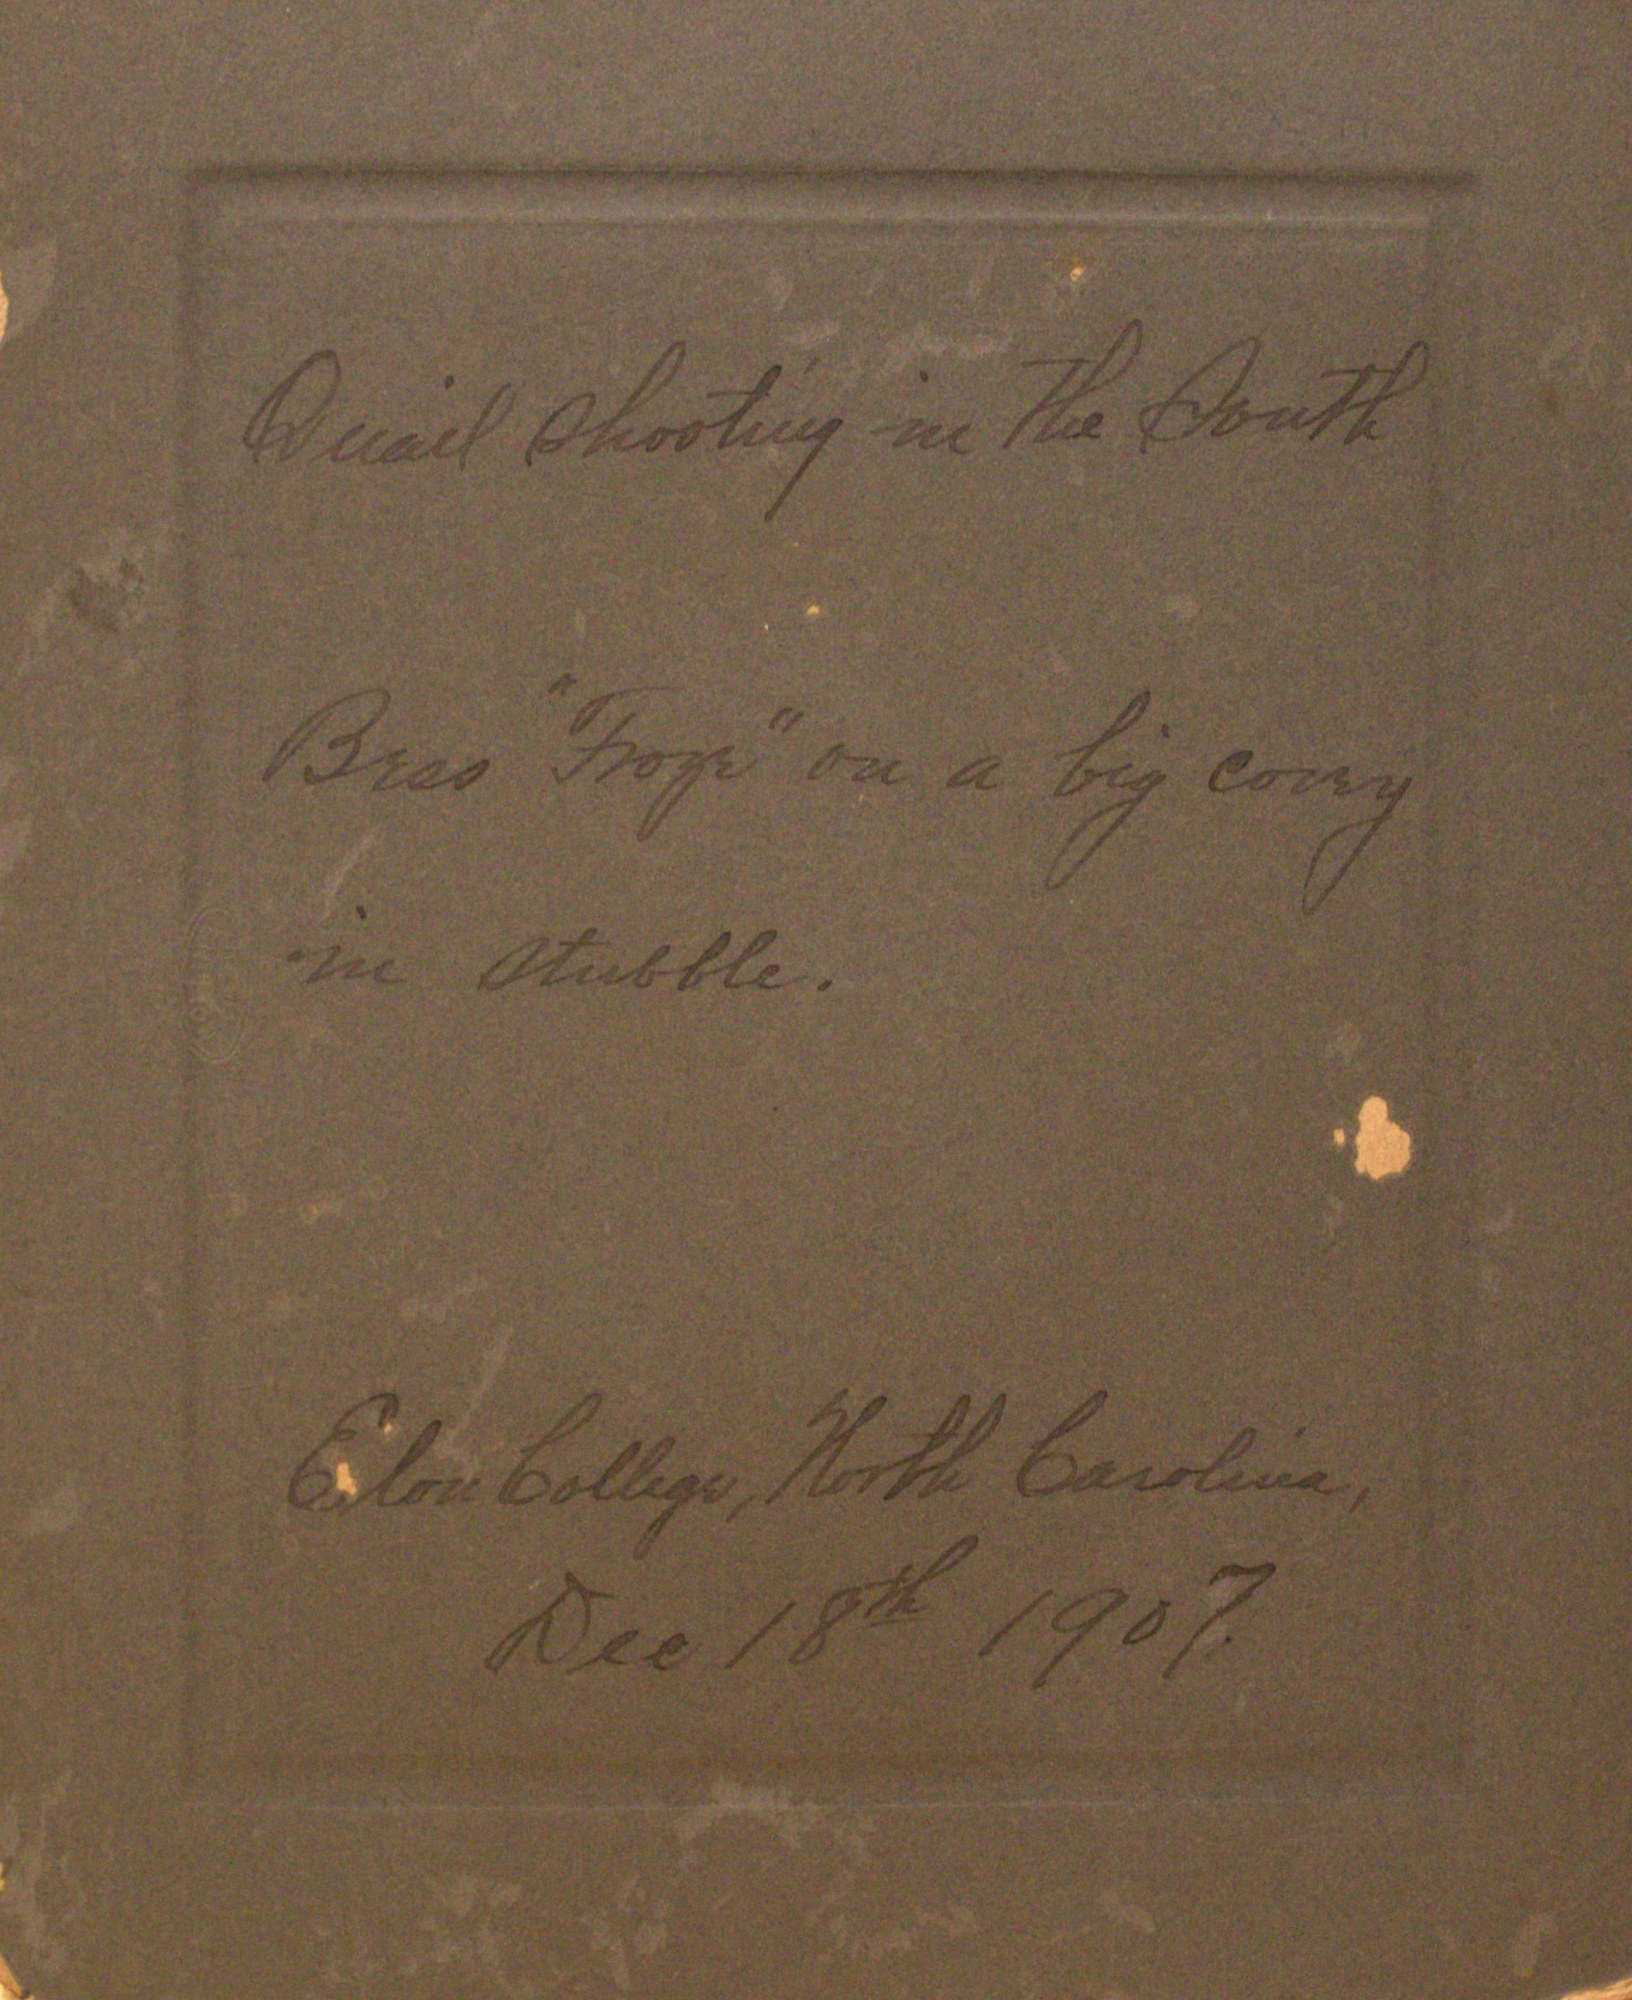 Quail shooting in the South
Bess "Froze" on a big covey
in stubble.
Elon College, North Carolina,
Dec 18th 1907.